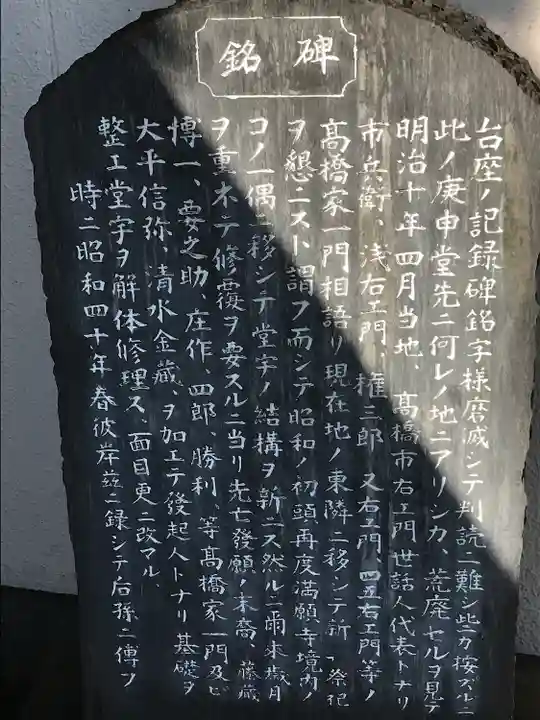 碑銘
台座ノ記録碑銘字様磨滅シテ判読ニ難シ此カ按ズルニ
此ノ庚申堂先ニ何レノ地ニアリシカ、荒廃セルヲ見テ
明治十年四月当地、髙橋市右ヱ門世話人代表トナリ
市兵衛、浅右ヱ門、権三郎、又右ヱ門、四五右ヱ門等ノ
髙橋家一門相語リ現在地ノ東隣ニ移シテ祈一祭祀
ヲ懇ニスト謂フ而シテ昭和ノ初頭再度満願寺境内ノ
コノ一偶ニ移シテ堂宇ノ結構ヲ新ニス然ルニ爾来歳月
ヲ重ネテ修覆ヲ要スルニ当リ先亡發願ノ末裔、藤蔵
博一、要之助、庄作、四郎、勝利、等髙橋家一門及ビ
大平信弥、清水金蔵、ヲ加エテ發起人トナリ基礎ヲ
整エ堂宇ヲ解体修理ス、面目更ニ改マル、
時ニ昭和四十年春彼岸茲ニ録シテ后孫ニ傳フ